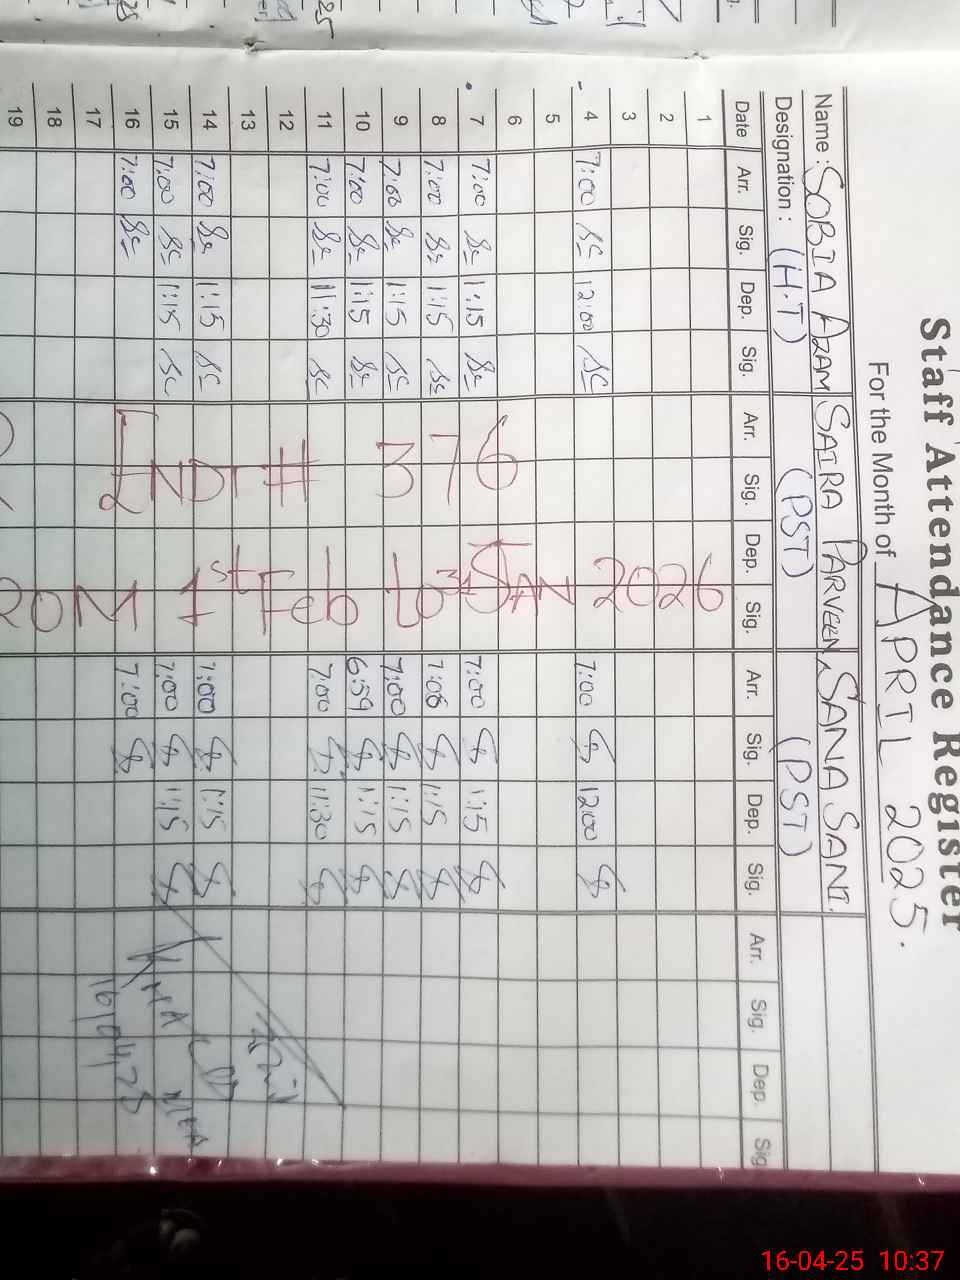 Staff Attendance Register
For the Month of APRIL 2025.
Name: SOBIA AZAM SAIRA PARVEEN, SANA SANI.
Designation: (H.T) (PST) (PST)
Date Arr. Sig. Dep. Sig. Arr. Sig. Dep. Sig. Arr. Sig. Dep. Sig. Arr. Sig. Dep. Sig
1
2
3
4 7:00 SC 12:00 SC 7:00 12:00
5
6
7 7:00 Sc 1:15 Sc 7:00 1:15
8 7:00 Sc 1:15 Sc 7:08 1:15
9 7:00 Sc 1:15 SC 7:00 1:15
10 7:00 Sc 1:15 Sc 6:59 1:15
11 7:00 Sc 11:30 SC 7:00 11:30
12
13
14 7:00 Sc 1:15 SC 7:00 1:15
15 7:00 SC 1:15 SC 7:00 1:15
16 7:00 Sc 7:00
17
18
19
END # 376
ROM 1st Feb to 31 JAN 2026
MEA
16/04/25
16-04-25 10:37